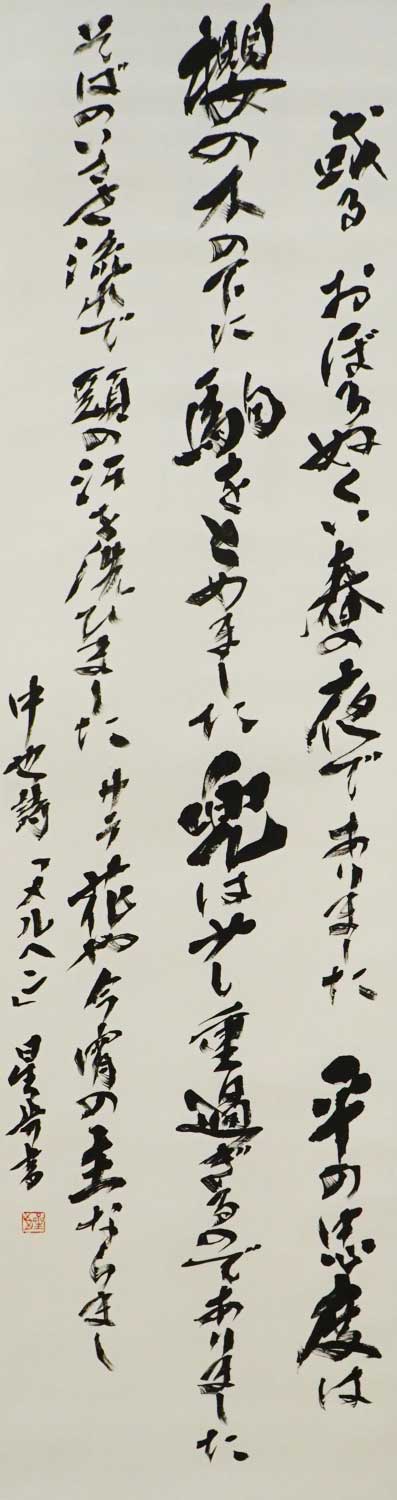 或るおぼろぬくい春の夜でありました 平の忠度は
櫻の木の下に駒をとめました 兜は少し重過ぎるのでありました
そばのいささ流れで頭の汗を洗ひました サテ花や今宵の主ならまし
中也詩「メルヘン」 星岑書